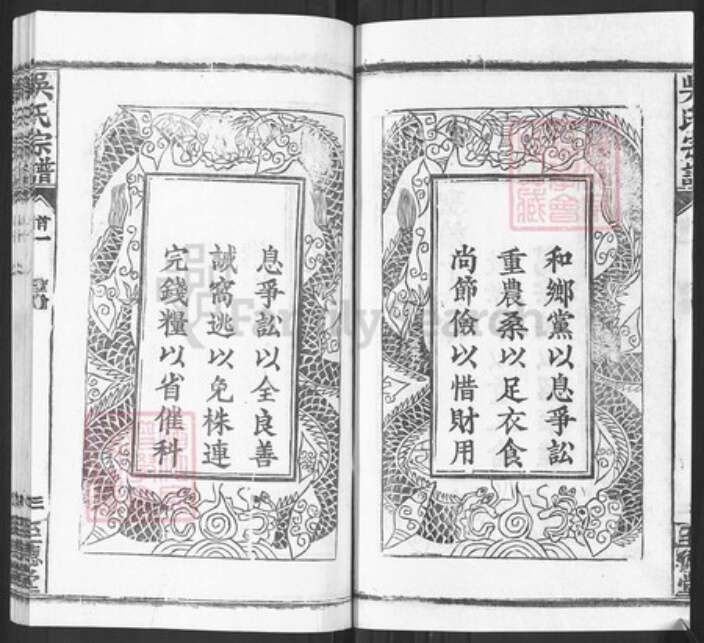 和鄉黨以息爭訟
重農桑以足衣食
尚節儉以惜財用
息爭訟以全良善
誡窩逃以免株連
完錢糧以省催科
吳氏宗譜
首一
吳氏宗譜
FamilySearch